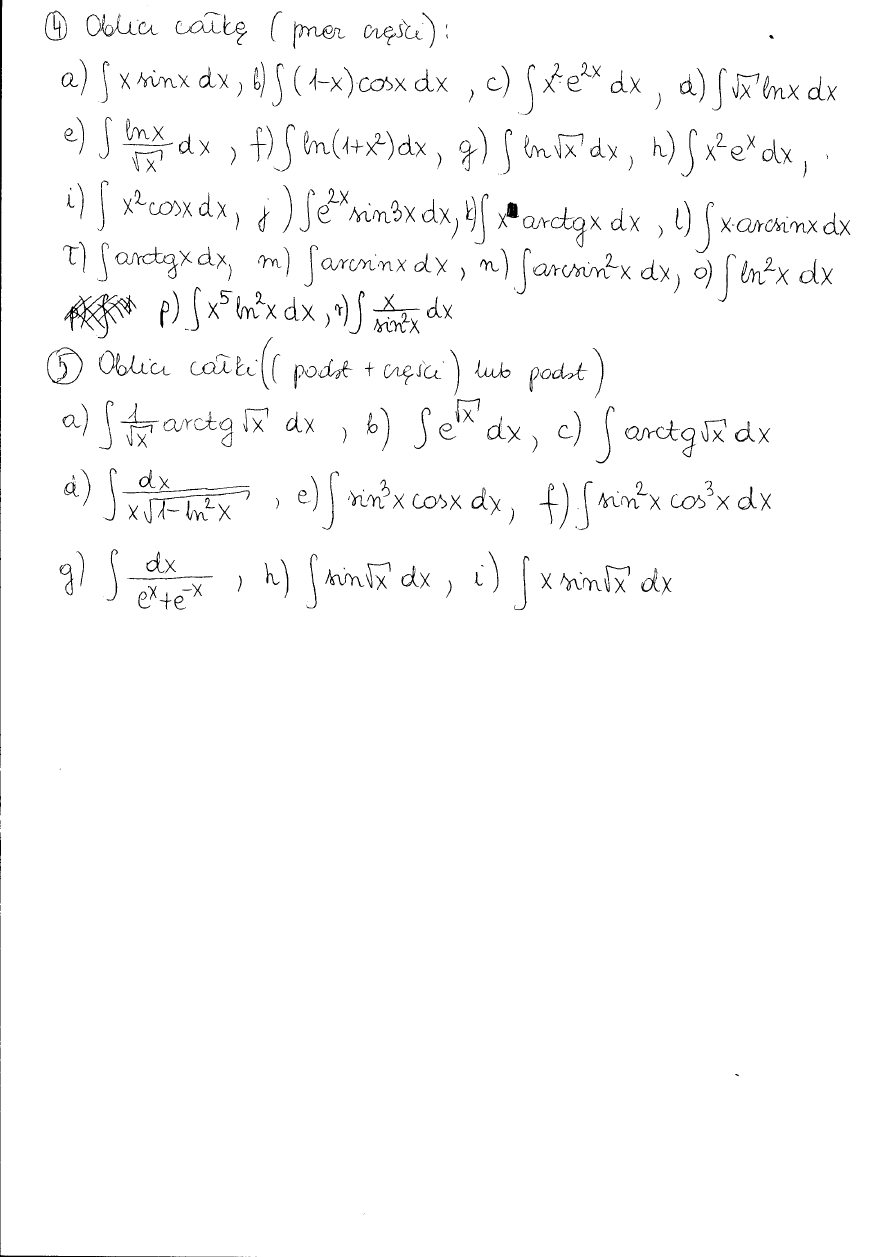 ④ Oblicz całkę (przez części):
a) ∫ x sinx dx, b) ∫ (1-x) cosx dx, c) ∫ x²·e^{2x} dx, d) ∫ √x lnx dx
e) ∫ \frac{lnx}{√x} dx, f) ∫ ln(1+x²) dx, g) ∫ ln√x dx, h) ∫ x² e^x dx,
i) ∫ x² cosx dx, j) ∫ e^{2x} sin3x dx, k) ∫ x arctgx dx, l) ∫ x·arcsinx dx
ł) ∫ arctgx dx, m) ∫ arcsinx dx, n) ∫ arcsin²x dx, o) ∫ ln²x dx
p) ∫ x⁵ ln²x dx, r) ∫ \frac{x}{sin²x} dx
⑤ Oblicz całki ((podst + części) lub podst)
a) ∫ \frac{1}{√x} arctg √x dx, b) ∫ e^{√x} dx, c) ∫ arctg√x dx
d) ∫ \frac{dx}{x√{1-ln²x}}, e) ∫ sin³x cosx dx, f) ∫ sin²x cos³x dx
g) ∫ \frac{dx}{e^x+e^{-x}}, h) ∫ sin√x dx, i) ∫ x sin√x dx